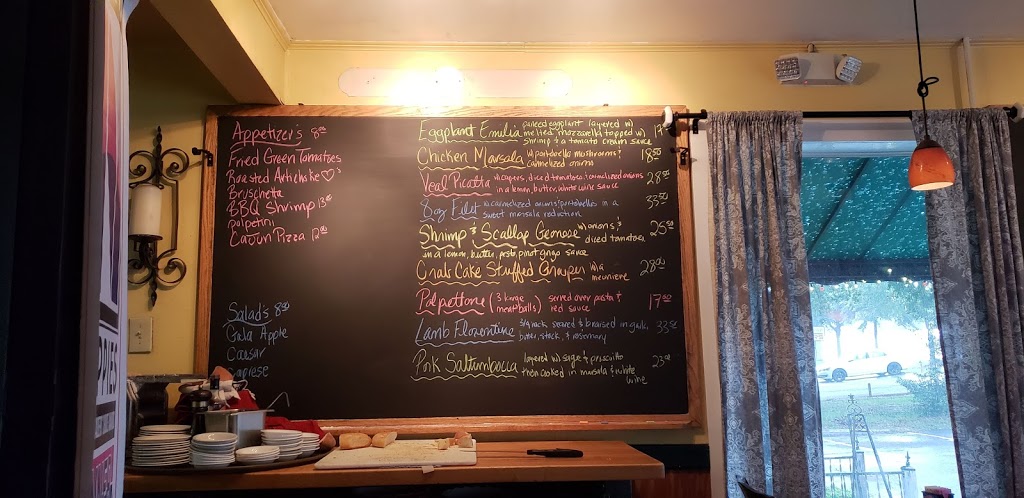 Appetizer's 8.00
Fried Green Tomatoes
Roasted Artichoke ♡'s
Bruschetta
BBQ Shrimp 13.00
polpetini
Cajun Pizza 12.00
Salad's 8.50
Gala Apple
Caesar
Caprese
Eggplant Emilia paneed eggplant layered w/
melted mozzarella topped w/ 17
shrimp & a tomato cream sauce
Chicken Marsala w/ portobello mushrooms & 18.50
carmelized onions
Veal Picatta w/ capers, diced tomatoes, & carmelized onions 28.50
in a lemon, butter, white wine sauce
8oz Filet w/ carmelized onions & portobellos in a 33.50
sweet marsala reduction
Shrimp & Scallop Genoese w/ onions & 25.50
diced tomatoes
in a lemon, butter, pesto, pinot grigio sauce
Crab Cake Stuffed Grouper w/ a 28.00
meuniere
Polpettone (3 large served over pasta & 17.50
meatballs) red sauce
Lamb Florentine 3/4 rack, seared & braised in garlic, 33.50
butter, stock, & rosemary
Pork Saltumbocca layered w/ sage & prosciutto 23.00
then cooked in marsala & white
wine